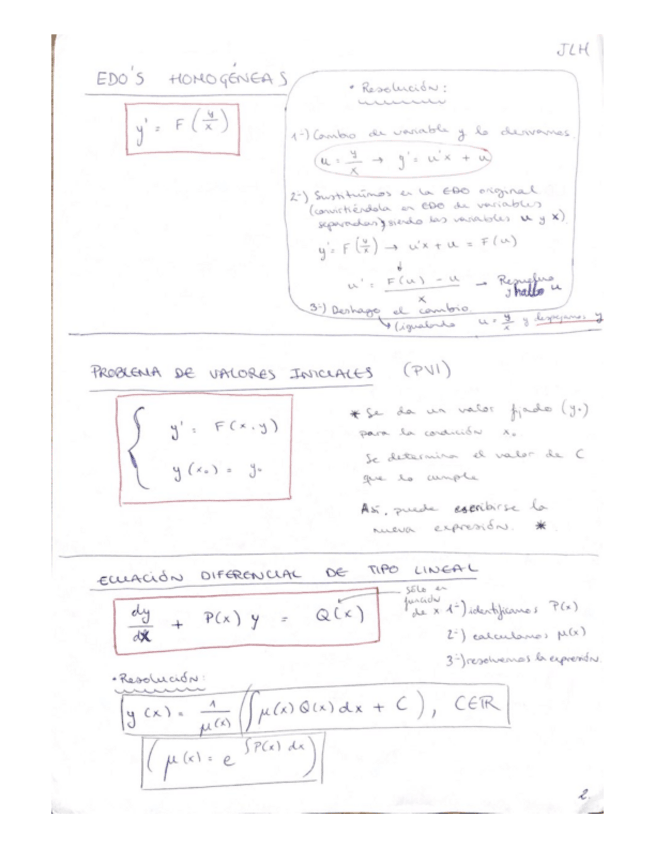 JLH
EDO'S HOMOGÉNEAS
y' = F(y/x)
• Resolución:
1-) Cambio de variable y lo derivamos
u = y/x → y' = u'x + u
2-) Sustituimos en la EDO original
(convirtiéndola en EDO de variables
separadas) siendo las variables u y x)
y' = F(y/x) → u'x + u = F(u)
↓
u' = F(u) - u / x → Resuelvo
y hallo u
3-) Deshago el cambio
↳ (igualando u = y/x y despejamos y
PROBLEMA DE VALORES INICIALES (PVI)
y' = F(x,y)
y(x₀) = y₀
* Se da un valor fijado (y₀)
para la condición x₀
Se determina el valor de C
que lo cumple
Así, puede escribirse la
nueva expresión. *
ECUACIÓN DIFERENCIAL DE TIPO LINEAL
dy/dx + P(x) y = Q(x)
sólo en
función
de x
1-) identificamos P(x)
2-) calculamos μ(x)
3-) resolvemos la expresión.
• Resolución:
y(x) = 1/μ(x) (∫μ(x)Q(x)dx + C), C∈ℝ
(μ(x) = e^∫P(x) dx)
2.